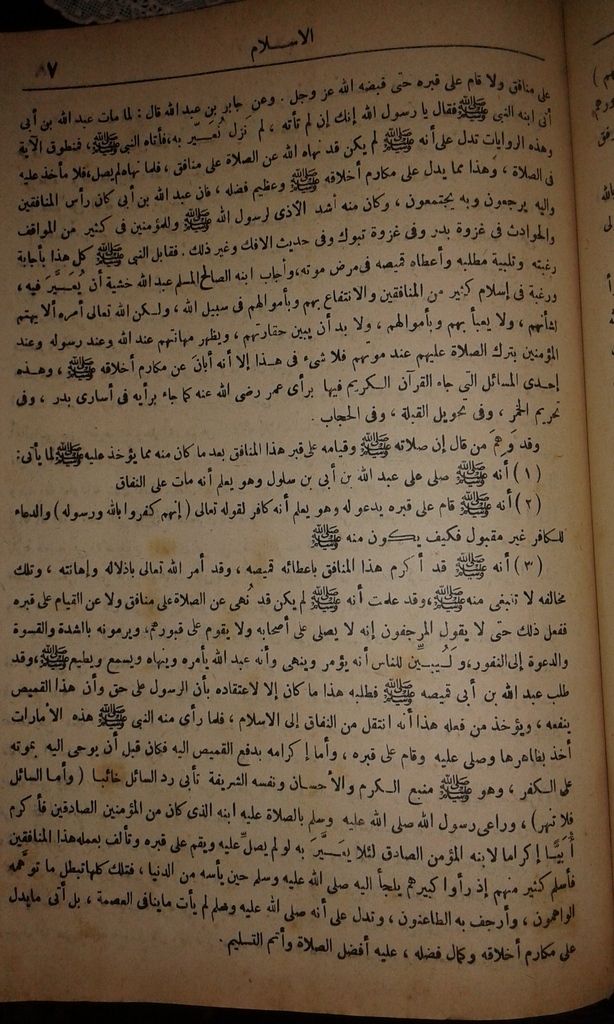 الاسلام
٨٧
على منافق ولا قام على قبره حتى قبضه الله عز وجل . وعن جابر بن عبد الله قال : لما مات عبد الله بن أبى
أتى ابنه النبى ﷺ فقال يا رسول الله إنك إن لم تأته ، لم نزل نُعيَّر به ، فأتاه النبى ﷺ ، فنطوق الآية
وهذه الروايات تدل على أنه ﷺ لم يكن قد نهاه الله عن الصلاة على منافق ، فلما نهاه لم يصل، فلا مأخذ عليه
فى الصلاة ، وهذا مما يدل على مكارم أخلاقه ﷺ وعظيم فضله ، فان عبد الله بن أبى كان رأس المنافقين
واليه يرجعون وبه يجتمعون ، وكان منه أشد الأذى لرسول الله ﷺ وللمؤمنين فى كثير من المواقف
والحوادث فى غزوة بدر وفى غزوة تبوك وفى حديث الافك وغير ذلك . فقابل النبى ﷺ كل هذا بأجابة
رغبته وتلبية مطلبه وأعطاه قميصه فى مرض موته، وأجاب ابنه الصالح المسلم عبد الله خشية أن يُعيَّرَ فيه ،
ورغبة فى إسلام كثير من المنافقين والانتفاع بهم وبأموالهم فى سبيل الله ، ولكن الله تعالى أمره ألا يهتم
بشأنهم ، ولا يعبأ بهم وبأموالهم ، ولا بد أن يبين حقارتهم ، ويظهر مهانتهم عند الله وعند رسوله وعند
المؤمنين بترك الصلاة عليهم عند موتهم فلا شىء فى هذا إلا أنه أبانَ عن مكارم أخلاقه ﷺ ، وهذه
إحدى المسائل التى جاء القرآن الكريم فيها برأى عمر رضى الله عنه كما جاء برأيه فى أسارى بدر ، وفى
تحريم الخمر ، وفى تحويل القبلة ، وفى الحجاب .
وقد وَهِمَ من قال إن صلاته ﷺ وقيامه على قبر هذا المنافق بعد ما كان منه مما يؤخذ عليه ﷺ لما يأتى :
(١) أنه ﷺ صلى على عبد الله بن أبى بن سلول وهو يعلم أنه مات على النفاق
(٢) أنه ﷺ قام على قبره يدعو له وهو يعلم أنه كافر لقوله تعالى (إنهم كفروا بالله ورسوله) والدعاء
للكافر غير مقبول فكيف يكون منه ﷺ
(٣) أنه ﷺ قد أكرم هذا المنافق باعطائه قميصه ، وقد أمر الله تعالى باذلاله وإهانته ، وتلك
مخالفه لا تنبغى منه ﷺ ، وقد علمت أنه ﷺ لم يكن قد نُهى عن الصلاة على منافق ولا عن القيام على قبره
ففعل ذلك حتى لا يقول المرجفون إنه لا يصلى على أصحابه ولا يقوم على قبورهم، ويرمونه بالشدة والقسوة
والدعوة إلى النفور، و لَيُبيِّن للناس أنه يؤمر وينهى وأنه عبد الله يأمره وينهاه ويسمع ويطيع ﷺ ، وقد
طلب عبد الله بن أبى قميصه ﷺ فطلبه هذا ما كان إلا لاعتقاده بأن الرسول على حق وأن هذا القميص
ينفعه ، ويؤخذ من فعله هذا أنه انتقل من النفاق إلى الاسلام ، فلما رأى منه النبى ﷺ هذه الأمارات
أخذ بظاهرها وصلى عليه وقام على قبره ، وأما إكرامه بدفع القميص اليه فكان قبل أن يوحى اليه بموته
على الكفر ، وهو ﷺ منبع الكرم والأحسان ونفسه الشريفة تأبى رد السائل خائبا ( وأما السائل
فلا تنهر) ، وراعى رسول الله صلى الله عليه وسلم بالصلاة عليه ابنه الذى كان من المؤمنين الصادقين فأكرم
أَبيًّا إكراما لابنه المؤمن الصادق لئلا يعيَّرَ به لو لم يصلِّ عليه ويقم على قبره وتألف بعمله هذا المنافقين
فأسلم كثير منهم إذ رأوا كبيرهم يلجأ اليه صلى الله عليه وسلم حين يأسه من الدنيا ، فتلك كلها تبطل ما توهمه
الواهمون ، وأرجف به الطاعنون ، وتدل على أنه صلى الله عليه وسلم لم يأت ماينافى العصمة ، بل أتى مايدل
على مكارم أخلاقه وكمال فضله ، عليه أفضل الصلاة وأتم التسليم .